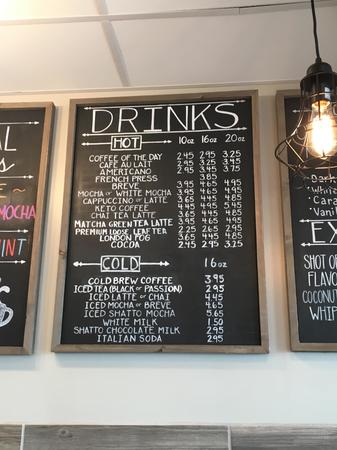 DRINKS
HOT 10oz 16oz 20oz
COFFEE OF THE DAY 2.45 2.95 3.25
CAFE AU LAIT 2.45 2.95 3.25
AMERICANO 2.95 3.45 3.75
FRENCH PRESS 3.85
BREVE 3.95 4.65 4.95
MOCHA OR WHITE MOCHA 3.95 4.65 4.95
CAPPUCCINO OR LATTE 3.65 4.45 4.85
KETO COFFEE 3.95 4.45
CHAI TEA LATTE 3.65 4.45 4.85
MATCHA GREEN TEA LATTE 3.95 4.65 4.95
PREMIUM LOOSE LEAF TEA 2.25 2.65 2.95
LONDON FOG 3.65 4.45 4.85
COCOA 2.45 2.95 3.25
COLD 16oz
COLD BREW COFFEE 3.95
ICED TEA (BLACK OR PASSION) 2.95
ICED LATTE OR CHAI 4.45
ICED MOCHA OR BREVE 4.65
ICED SHATTO MOCHA 5.65
WHITE MILK 1.50
SHATTO CHOCOLATE MILK 2.95
ITALIAN SODA 2.95
AL
MOCHA
INT
Dark
White
Cara
Vanil
EX
SHOT OF
FLAVO
COCONUT
WHIP